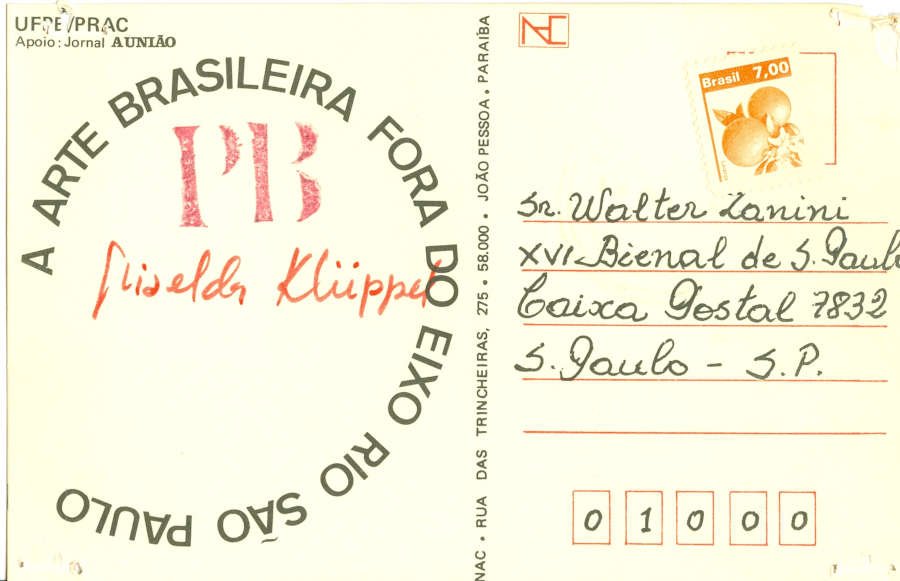 UFPB/PRAC
Apoio: Jornal A UNIÃO
A ARTE BRASILEIRA FORA DO EIXO RIO SÃO PAULO
PB
Griselda Klüppel
NAC • RUA DAS TRINCHEIRAS, 275 • 58.000 • JOÃO PESSOA, PARAÍBA
NAC
Brasil 7,00
Sr. Walter Zanini
XVI Bienal de S. Paulo
Caixa Postal 7832
S. Paulo - S.P.
0 1 0 0 0